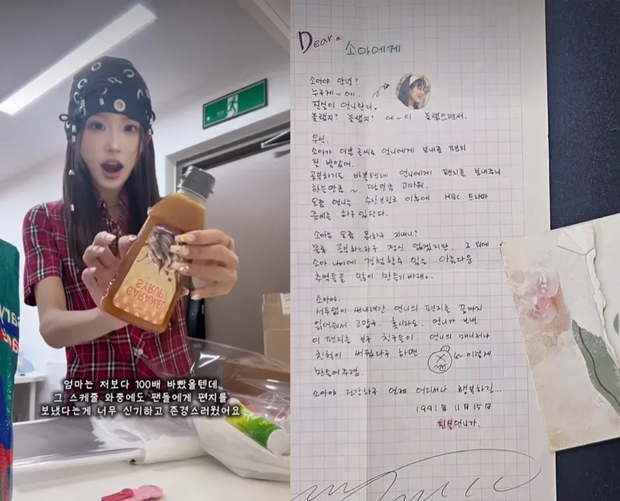 엄마는 저보다 100배 바빴을텐데
그 스케줄 와중에도 팬들에게 편지를
보냈다는게 너무 신기하고 존경스러웠어요
CARAMEL
SYRUP
Dear* 소아에게
소아야 안녕?
누구게~ 에.
진실이 언니란다.
놀랬지? 놀랬지? 에~이 놀랬으면서.
우선.
소아가 이쁜 글씨로 언니에게 보내준 편지
잘 받았어.
공부하기도 바쁠텐데 언니에게 편지를 보내주니
고마워.
요즘 언니는 수잔브링크 이후에 MBC 드라마
준비를 하구 있단다.
소아는 요즘 뭐하구 지내니?
물론 공부하느라구 정신 없겠지만, 그 외에
소아 나이에 경험할 수 있는 아름다운
추억들을 많이 만들기 바래.
소아야.
써내려간 언니의 편지를 끝까지
읽어줘서 고맙구. 혹시라도. 언니가 보낸
이 편지를 보구 친구들이 언니의 매니저나
친척이 써줬다구 하면 이렇게
만들어주렴.
소아야 건강하구 언제 어디서나 행복하길...
1991년 11월 15일
진실언니가.